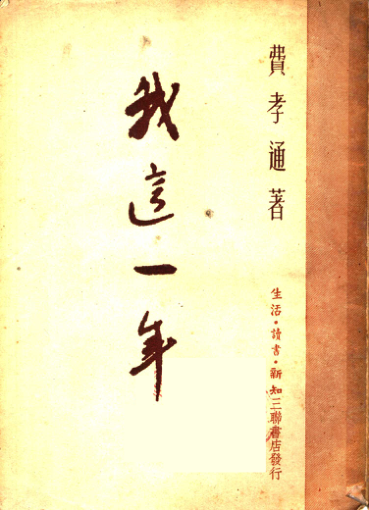 費孝通著
我這一年
生活·讀書·新知三聯書店發行